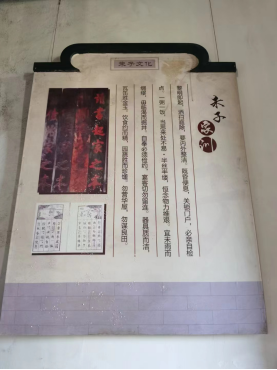 朱子文化
朱子家训
黎明即起，洒扫庭除，要内外整洁，既昏便息，关锁门户，必亲自检
点。一粥一饭，当思来处不易，半丝半缕，恒念物力维艰，宜未雨而
绸缪，毋临渴而掘井。自奉必须俭约，宴客切勿留连。器具质而洁，
瓦缶胜金玉，饮食约而精，园蔬胜珍馐，勿营华屋，勿谋良田。
讀書起家之本